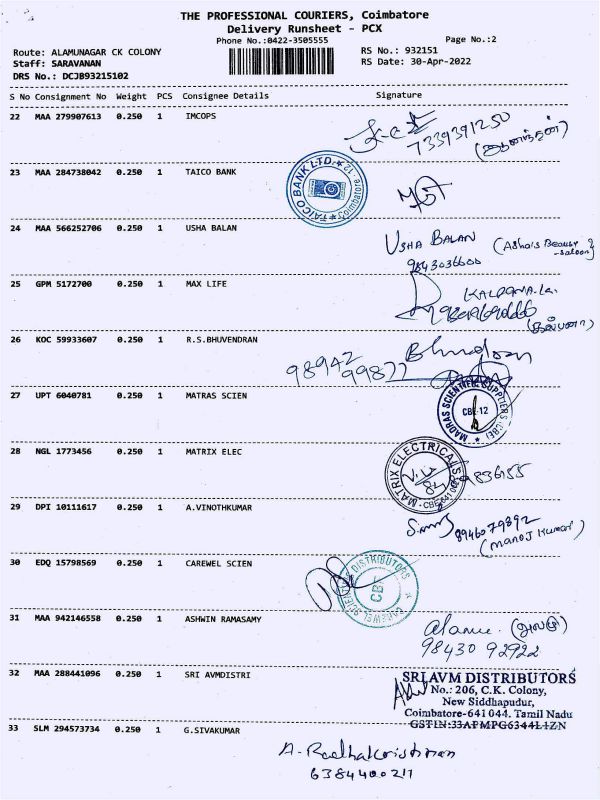 THE PROFESSIONAL COURIERS, Coimbatore
Delivery Runsheet - PCX
Phone No.:0422-3505555
Page No.:2
Route: ALAMUNAGAR CK COLONY
RS No.: 932151
Staff: SARAVANAN
RS Date: 30-Apr-2022
DRS No.: DCJB93215102
S No Consignment No Weight PCS Consignee Details Signature
22 MAA 279907613 0.250 1 IMCOPS
7339391250
23 MAA 284738042 0.250 1 TAICO BANK
TAICO BANK LTD. Coimbatore-12
24 MAA 566252706 0.250 1 USHA BALAN
USHA BALAN (Asha's Beauty saloon)
9843036600
25 GPM 5172700 0.250 1 MAX LIFE
KALPANA.la.
(கல்பனா)
26 KOC 59933607 0.250 1 R.S.BHUVENDRAN
98942
99877
27 UPT 6040781 0.250 1 MATRAS SCIEN
MADRAS SCIENTIFIC SUPPLIERS-CBE
CBE-12
28 NGL 1773456 0.250 1 MATRIX ELEC
MATRIX ELECTRICALS
29 DPI 10111617 0.250 1 A.VINOTHKUMAR
8946079892
(Manoj Kumar)
30 EDQ 15798569 0.250 1 CAREWEL SCIEN
CAREWEL SCIENTIFIC DISTRIBUTORS
CBE
31 MAA 942146558 0.250 1 ASHWIN RAMASAMY
98430 92922
32 MAA 288441096 0.250 1 SRI AVMDISTRI
SRI AVM DISTRIBUTORS
No.: 206, C.K. Colony,
New Siddhapudur,
Coimbatore-641 044. Tamil Nadu
GSTIN:33AFMPG6344L1ZN
33 SLM 294573734 0.250 1 G.SIVAKUMAR
A. Radhakrishnan
6384400211